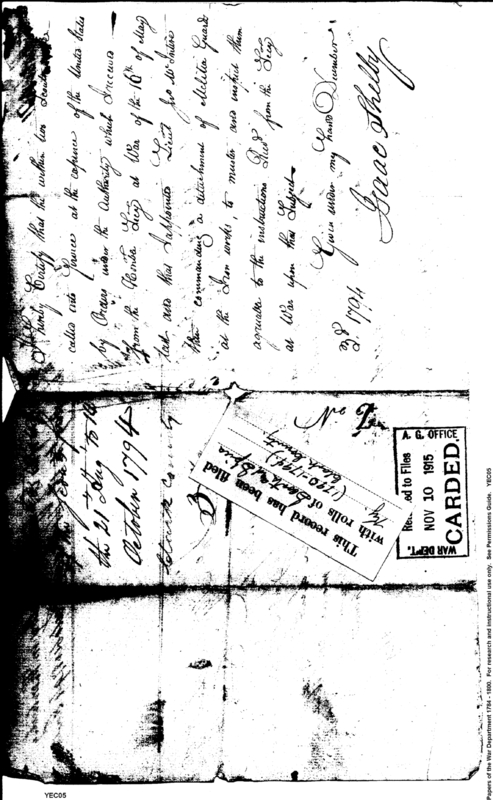 I do
hereby Certify that the within was
called into Service at the expence of the United States
by Orders under the Authority which I received
from the Honble Secy at War of the 16th of May
last and that I appointed Lieut Jno McIntire
then commanding a detachment of Melitia Guard
at the Iron works, to muster and inspect them
agreeable to the instructions from the Secy
at War upon that Subject
Given under my hand December
3d 1794
Isaac Shelby
from
the 21 Aug to 14
October 1794
Clark County
B
No
This record has been filed
with rolls of
(1790-1794)
Clark County
A. G. OFFICE
ed to Files
NOV 10 1915
CARDED.
WAR DEPT.
YEC05
Papers of the War Department 1784 - 1800. For research and instructional use only. See Permissions Guide. YEC05